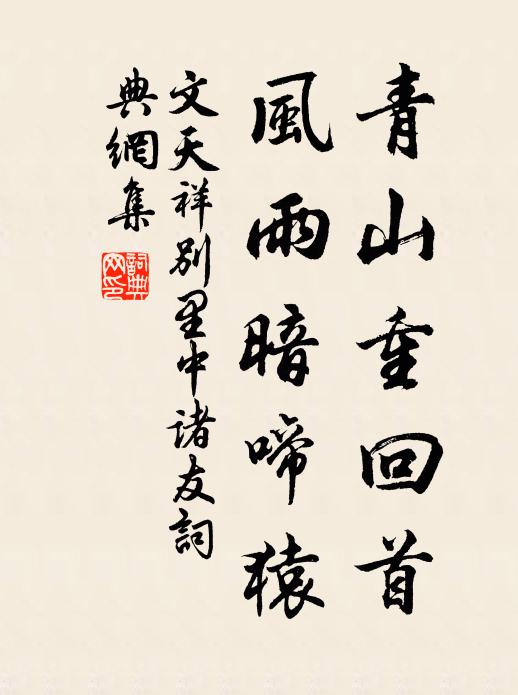 青山重回首
風雨暗啼猿
文天祥別里中諸友詞
典網集
詞典
网印